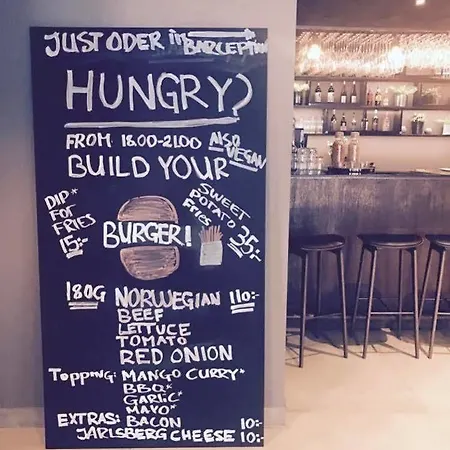 JUST ODER in BARCEPTION
HUNGRY?
FROM 18.00-21.00 ALSO VEGAN
BUILD YOUR
BURGER!
DIP*
FOR
FRIES
15:-
SWEET
POTATO
FRIES
35:-
180G NORWEGIAN 110:-
BEEF
LETTUCE
TOMATO
RED ONION
Topping: MANGO CURRY*
BBQ*
GARLIC*
MAYO*
EXTRAS: BACON 10:-
JARLSBERG CHEESE 10:-